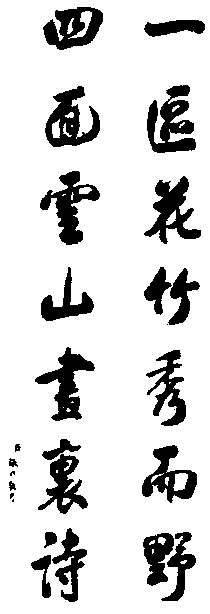 一區花竹秀而野
四面雲山畫裏詩